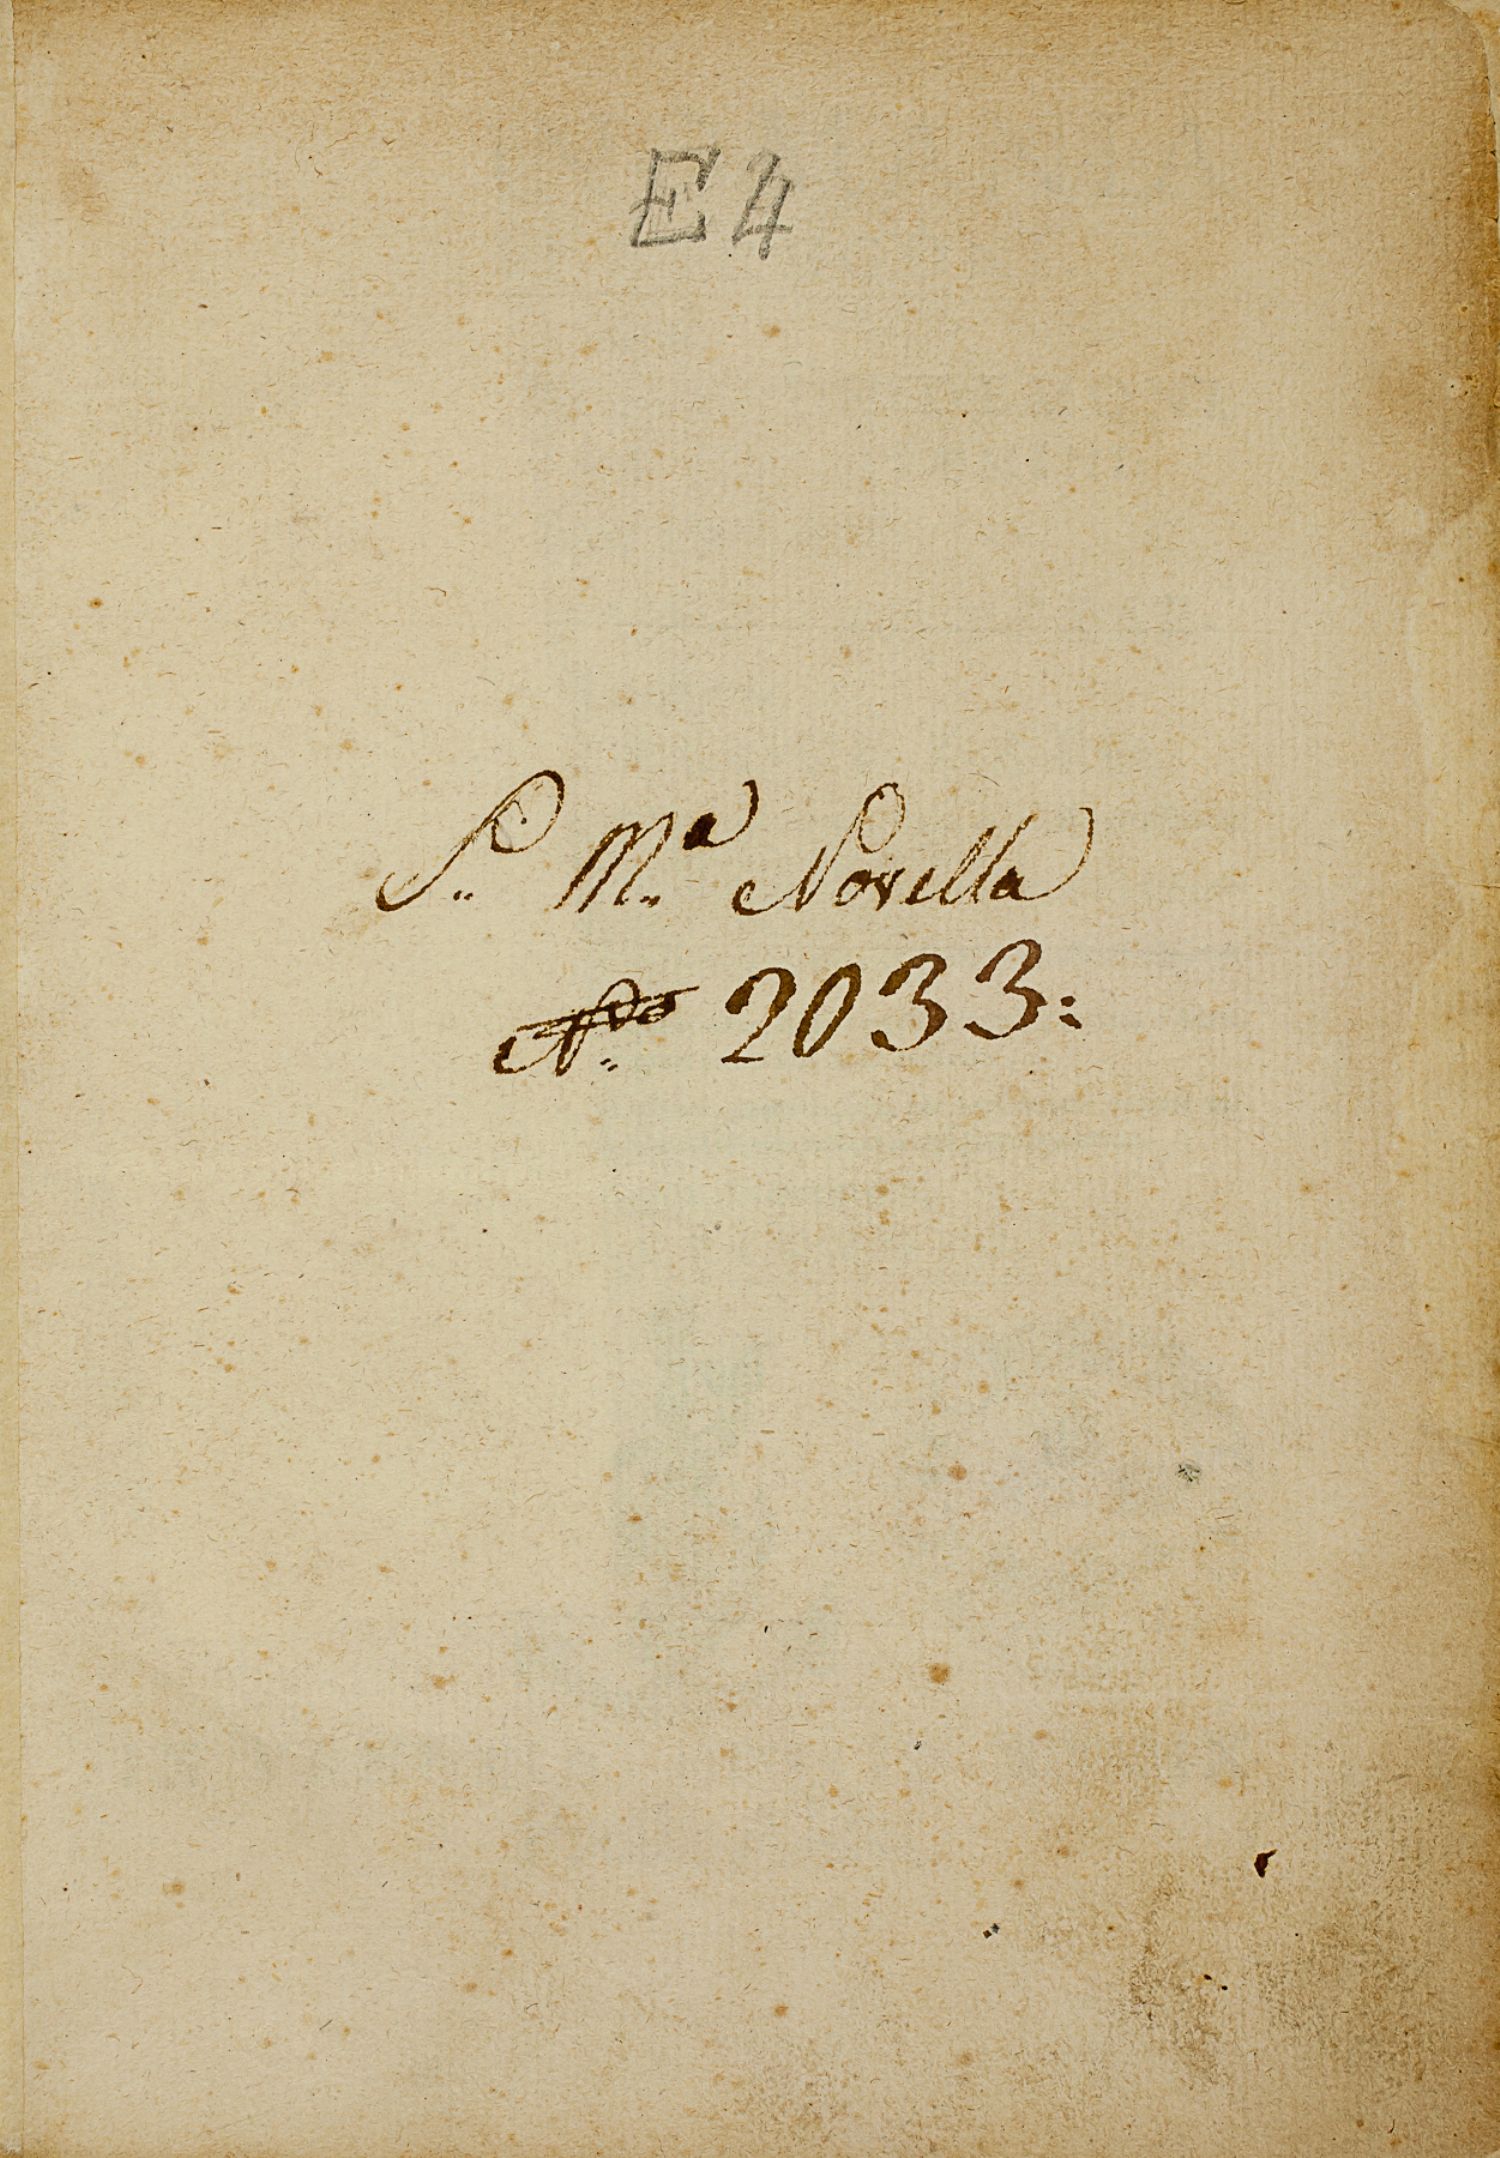 E 4
S. M.ª Novella
N.º 2033: